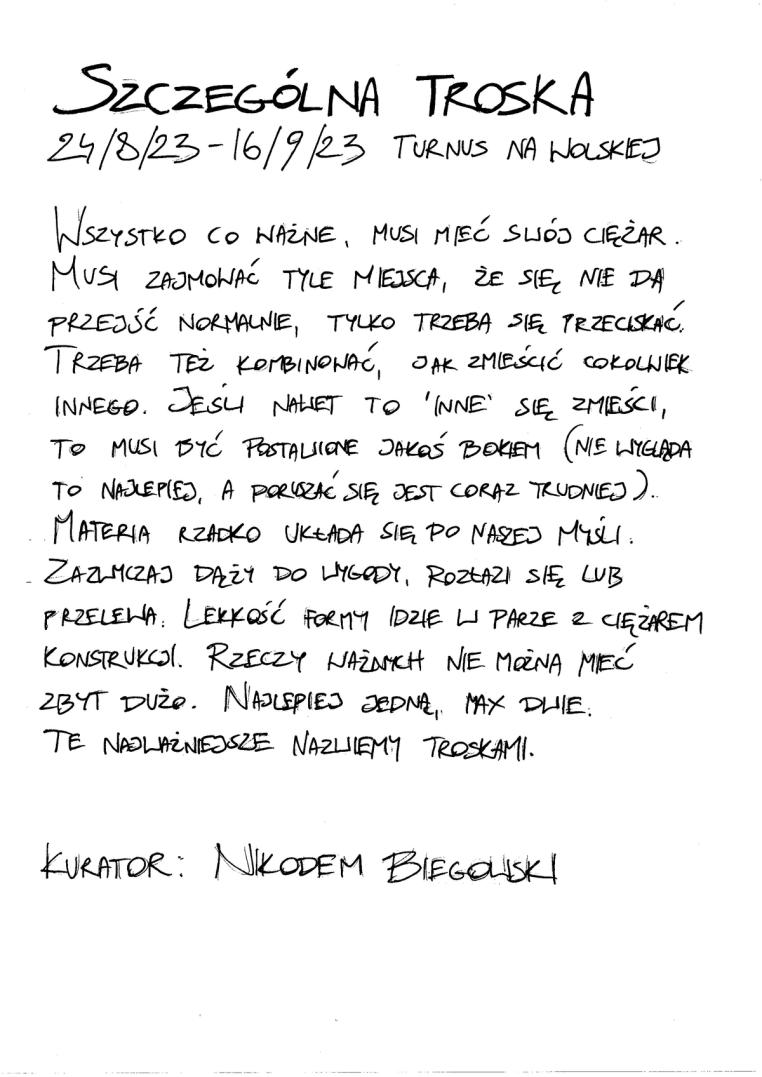 SZCZEGÓLNA TROSKA
24/8/23-16/9/23 TURNUS NA WOLSKIEJ
WSZYSTKO CO WAŻNE, MUSI MIEĆ SWÓJ CIĘŻAR.
MUSI ZAJMOWAĆ TYLE MIEJSCA, ŻE SIĘ NIE DA
PRZEJŚĆ NORMALNIE, TYLKO TRZEBA SIĘ PRZECISKAĆ.
TRZEBA TEŻ KOMBINOWAĆ, JAK ZMIEŚCIĆ COKOLWIEK
INNEGO. JEŚLI NAWET TO 'INNE' SIĘ ZMIEŚCI,
TO MUSI BYĆ POSTAWIONE JAKOŚ BOKIEM (NIE WYGLĄDA
TO NAJLEPIEJ, A PORUSZAĆ SIĘ JEST CORAZ TRUDNIEJ).
MATERIA RZADKO UKŁADA SIĘ PO NASZEJ MYŚLI.
ZAZWYCZAJ DĄŻY DO WYGODY, ROZŁAZI SIĘ LUB
PRZELEWA. LEKKOŚĆ FORMY IDZIE W PARZE Z CIĘŻAREM
KONSTRUKCJI. RZECZY WAŻNYCH NIE MOŻNA MIEĆ
ZBYT DUŻO. NAJLEPIEJ JEDNĄ, MAX DWIE.
TE NAJWAŻNIEJSZE NAZWIEMY TROSKAMI.
KURATOR: NIKODEM BIEGOWSKI